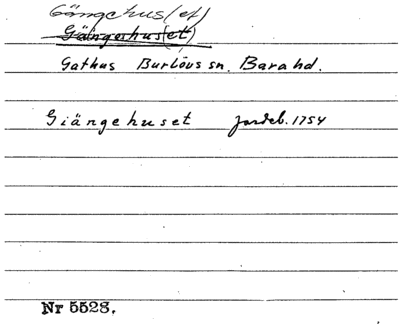 Gängehus(et)
Gängerhus(et)
Gathus Burlövs sn. Bara hd.
Giängehuset Jordeb. 1754
Nr 5528.